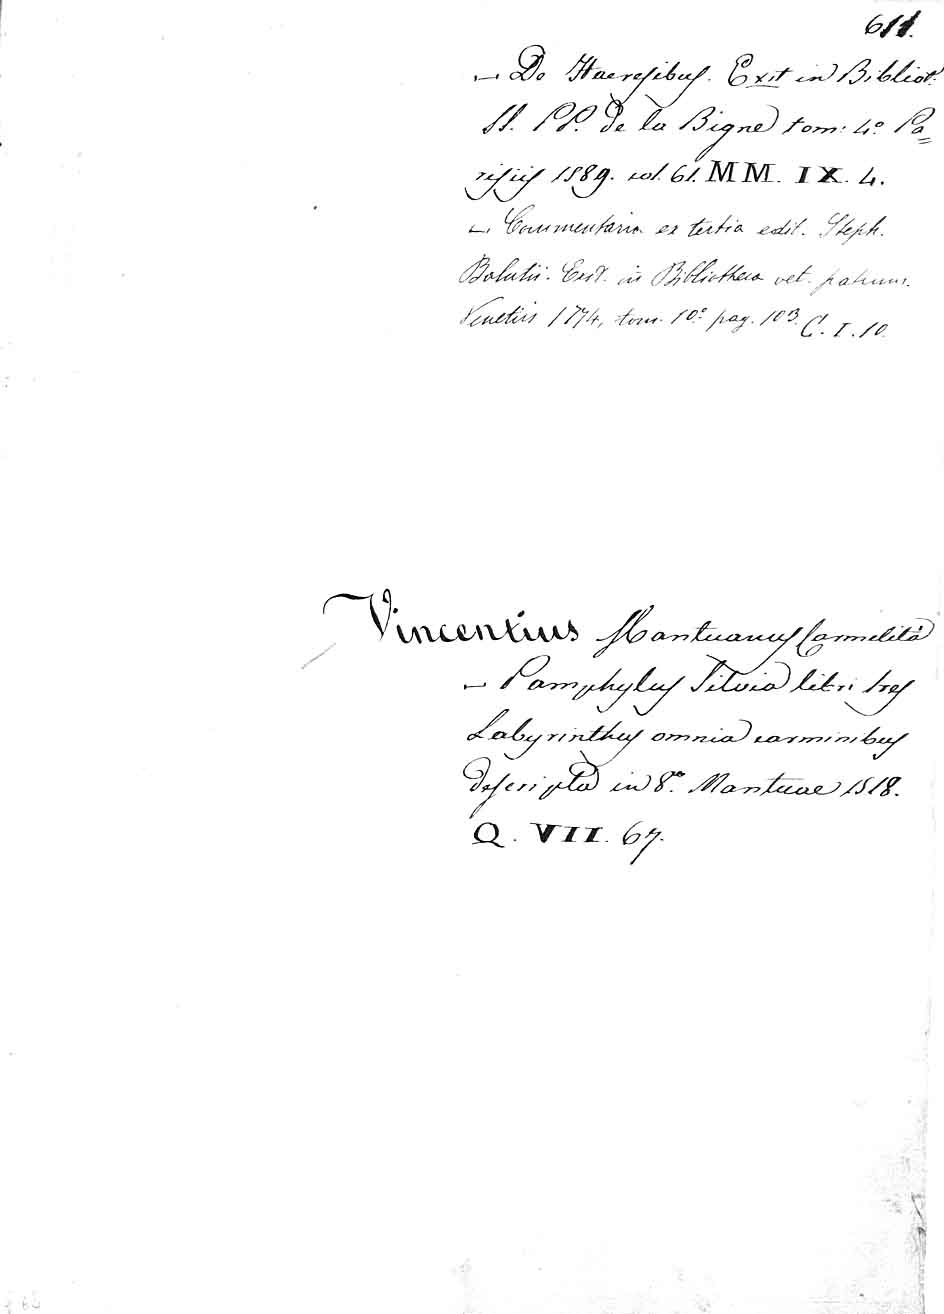 611.
— De Haeresibus. Exit in Bibliot.
SS. PP. de la Bigne tom: 4.º Pa=
risiis 1589. col. 61. MM. IX. 4.
— Commentaria ex tertia edit. Steph.
Balutii. Exit. in Bibliotheca vet. patrum.
Venetiis 1774, tom. 10.º pag. 103. C. I. 10.
Vincentius Mantuanus Carmelita
— Pamphylus Silvia libri tres
Labyrinthus omnia carminibus
descripta in 8.º Mantuae 1518.
Q. VII. 67.